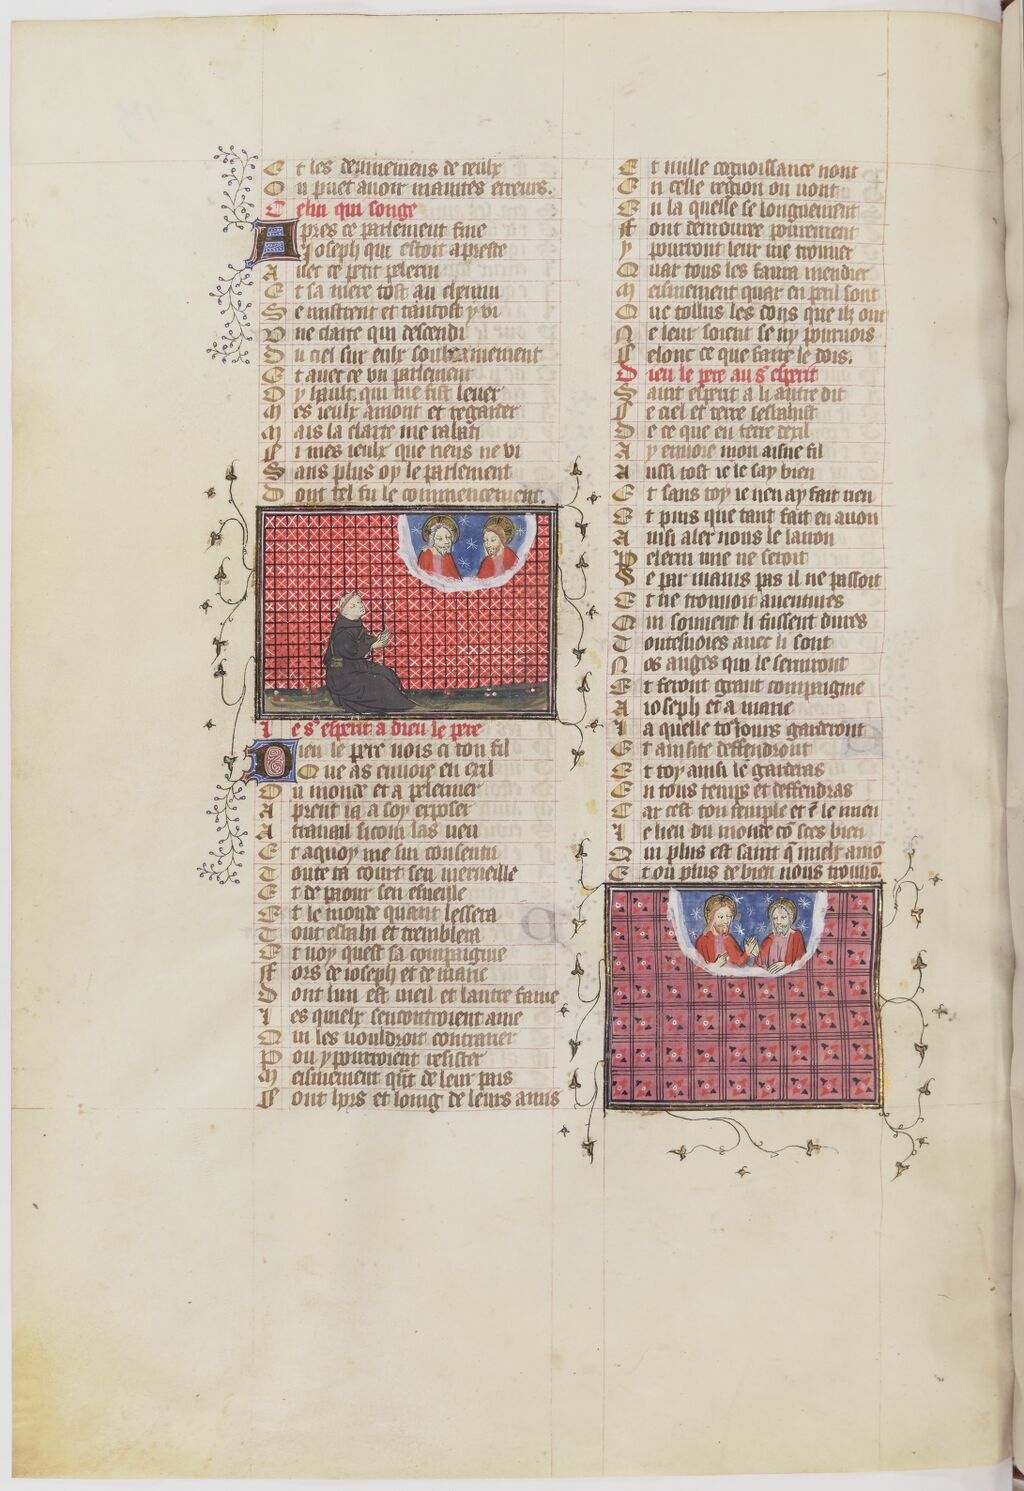 Et les deuinemens de ceulx
On puet auoir maintes erreurs.
Celui qui songe
Apres ce parlement fine
Ioseph qui estoit apreste
Auec ce petit pelerin
Et sa mere tost au chemin
Se mistrent et tantost y vi
Vne clarte qui descendi
Du ciel sur eulx soubdainement
Et auec ce vn parlement
Oy hault qui me fist leuer
Mes ieulx amont et regarder
Mais la clarte me rabati
Si mes ieulx que riens ne vi
Sans plus oy le parlement
Dont tel fu le commencement.
Le s' esperit a dieu le pere
Dieu le pere vois ci ton fil
Que as enuoie en exil
Ou monde et a peleriner
Aprent ia a soy exposer
A trauail si com las veu
Et a quoy me sui consentu
Toute ta court sen merueille
Et de paour sen esueille
Et le monde quant lessera
Tout esbahi et tremblera
Et voy quest sa compaignie
Fors de ioseph et de marie
Dont lun est vieil et lautre fame
Les quielx sencontroient ame
Qui les vouldroit contrarier
Pou y pourroient resister
Meismement q̄nt de leur pais
Sont hors et loing de leurs amis
Et nulle cognoissance nont
En celle region ou vont
En la quelle se longuement
Font demouree pourement
Y pourront leur vie trouuer
Quar tous les faura mendier
Meismement quar en peril sont
Que tollus les dons que ilz ont
Ne leur soient se ny pouruois
Selont ce que faire le dois.
Dieu le pere au s' esperit
Saint esperit a li autre dit
Se ciel et terre sesbahist
De ce que en terre dexil
Ay enuoie mon aisne fil
Aussi tost ie le say bien
Et sans toy ie nen ay fait rien
Et puis que tant fait en auon
Ainsi aler nous le lairon
Pelerin mie ne seroit
Se par mains pas il ne passoit
Et ne trouuoit auentures
Qui souuent li fussent dures
Toutesuoies auec li sont
Nos anges qui le seruiront
Et feront grant compaignie
A ioseph et a marie
La quelle tousiours garderont
Et ainsi te deffendront
Et toy ainsi le garderas
En tous temps et deffendras
Car cest ton temple et ē le mien
Le lieu du monde cō sces bien
Qui plus est saint q̄ mielx amō
Et ou plus de bien nous trouuō.